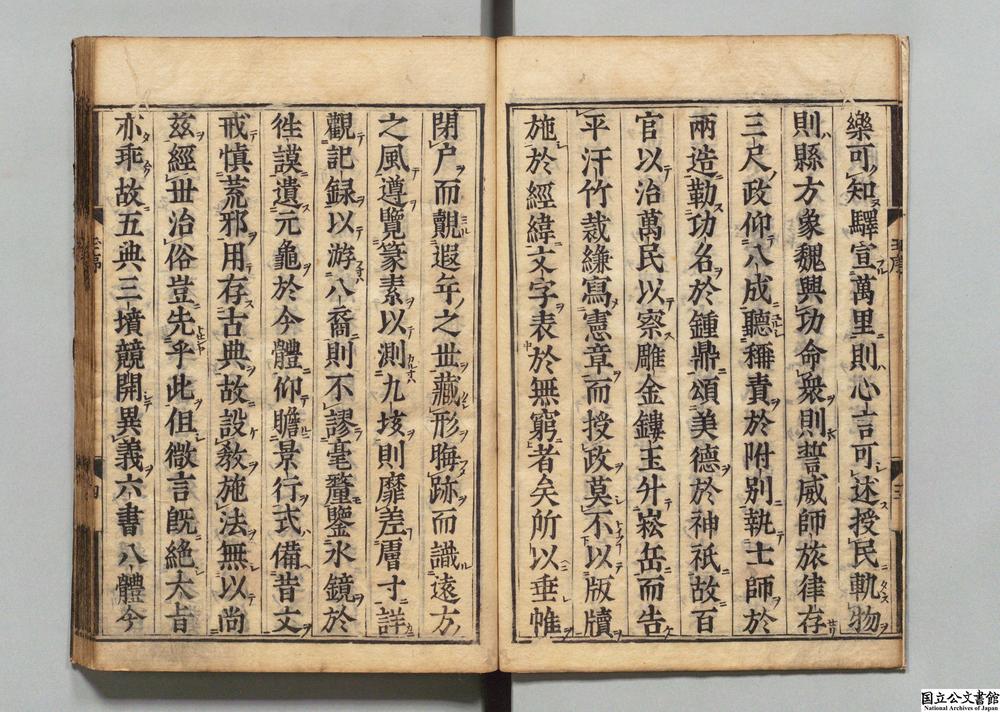 樂可知驛宣萬里則心言可述授民軌物
則縣方象魏興功命衆則誓威師旅律存
三尺政仰八成聽稱責於附別執士師於
兩造勒功名於鍾鼎頌美德於神祇故百
官以治萬民以察雕金鏤玉升崧岳而告
平汗竹裁縑寫憲章而授政莫不以版牘
施於經緯文字表於無窮者矣所以垂帷
閉户而覿遐年之丗藏形晦跡而識遠方
之風遵覽篆素以測九垓則靡差膚寸詳
觀記録以游八裔則不謬毫釐鑒水鏡於
徃謨遺元龜於今體仰瞻景行式備昔文
戒慎荒邪用存古典故設敎施法無以尚
兹經丗治俗豈先乎此但微言旣絶大旨
亦乖故五典三墳競開異義六書八體今
玉序
三
四
国立公文書館
National Archives of Japan